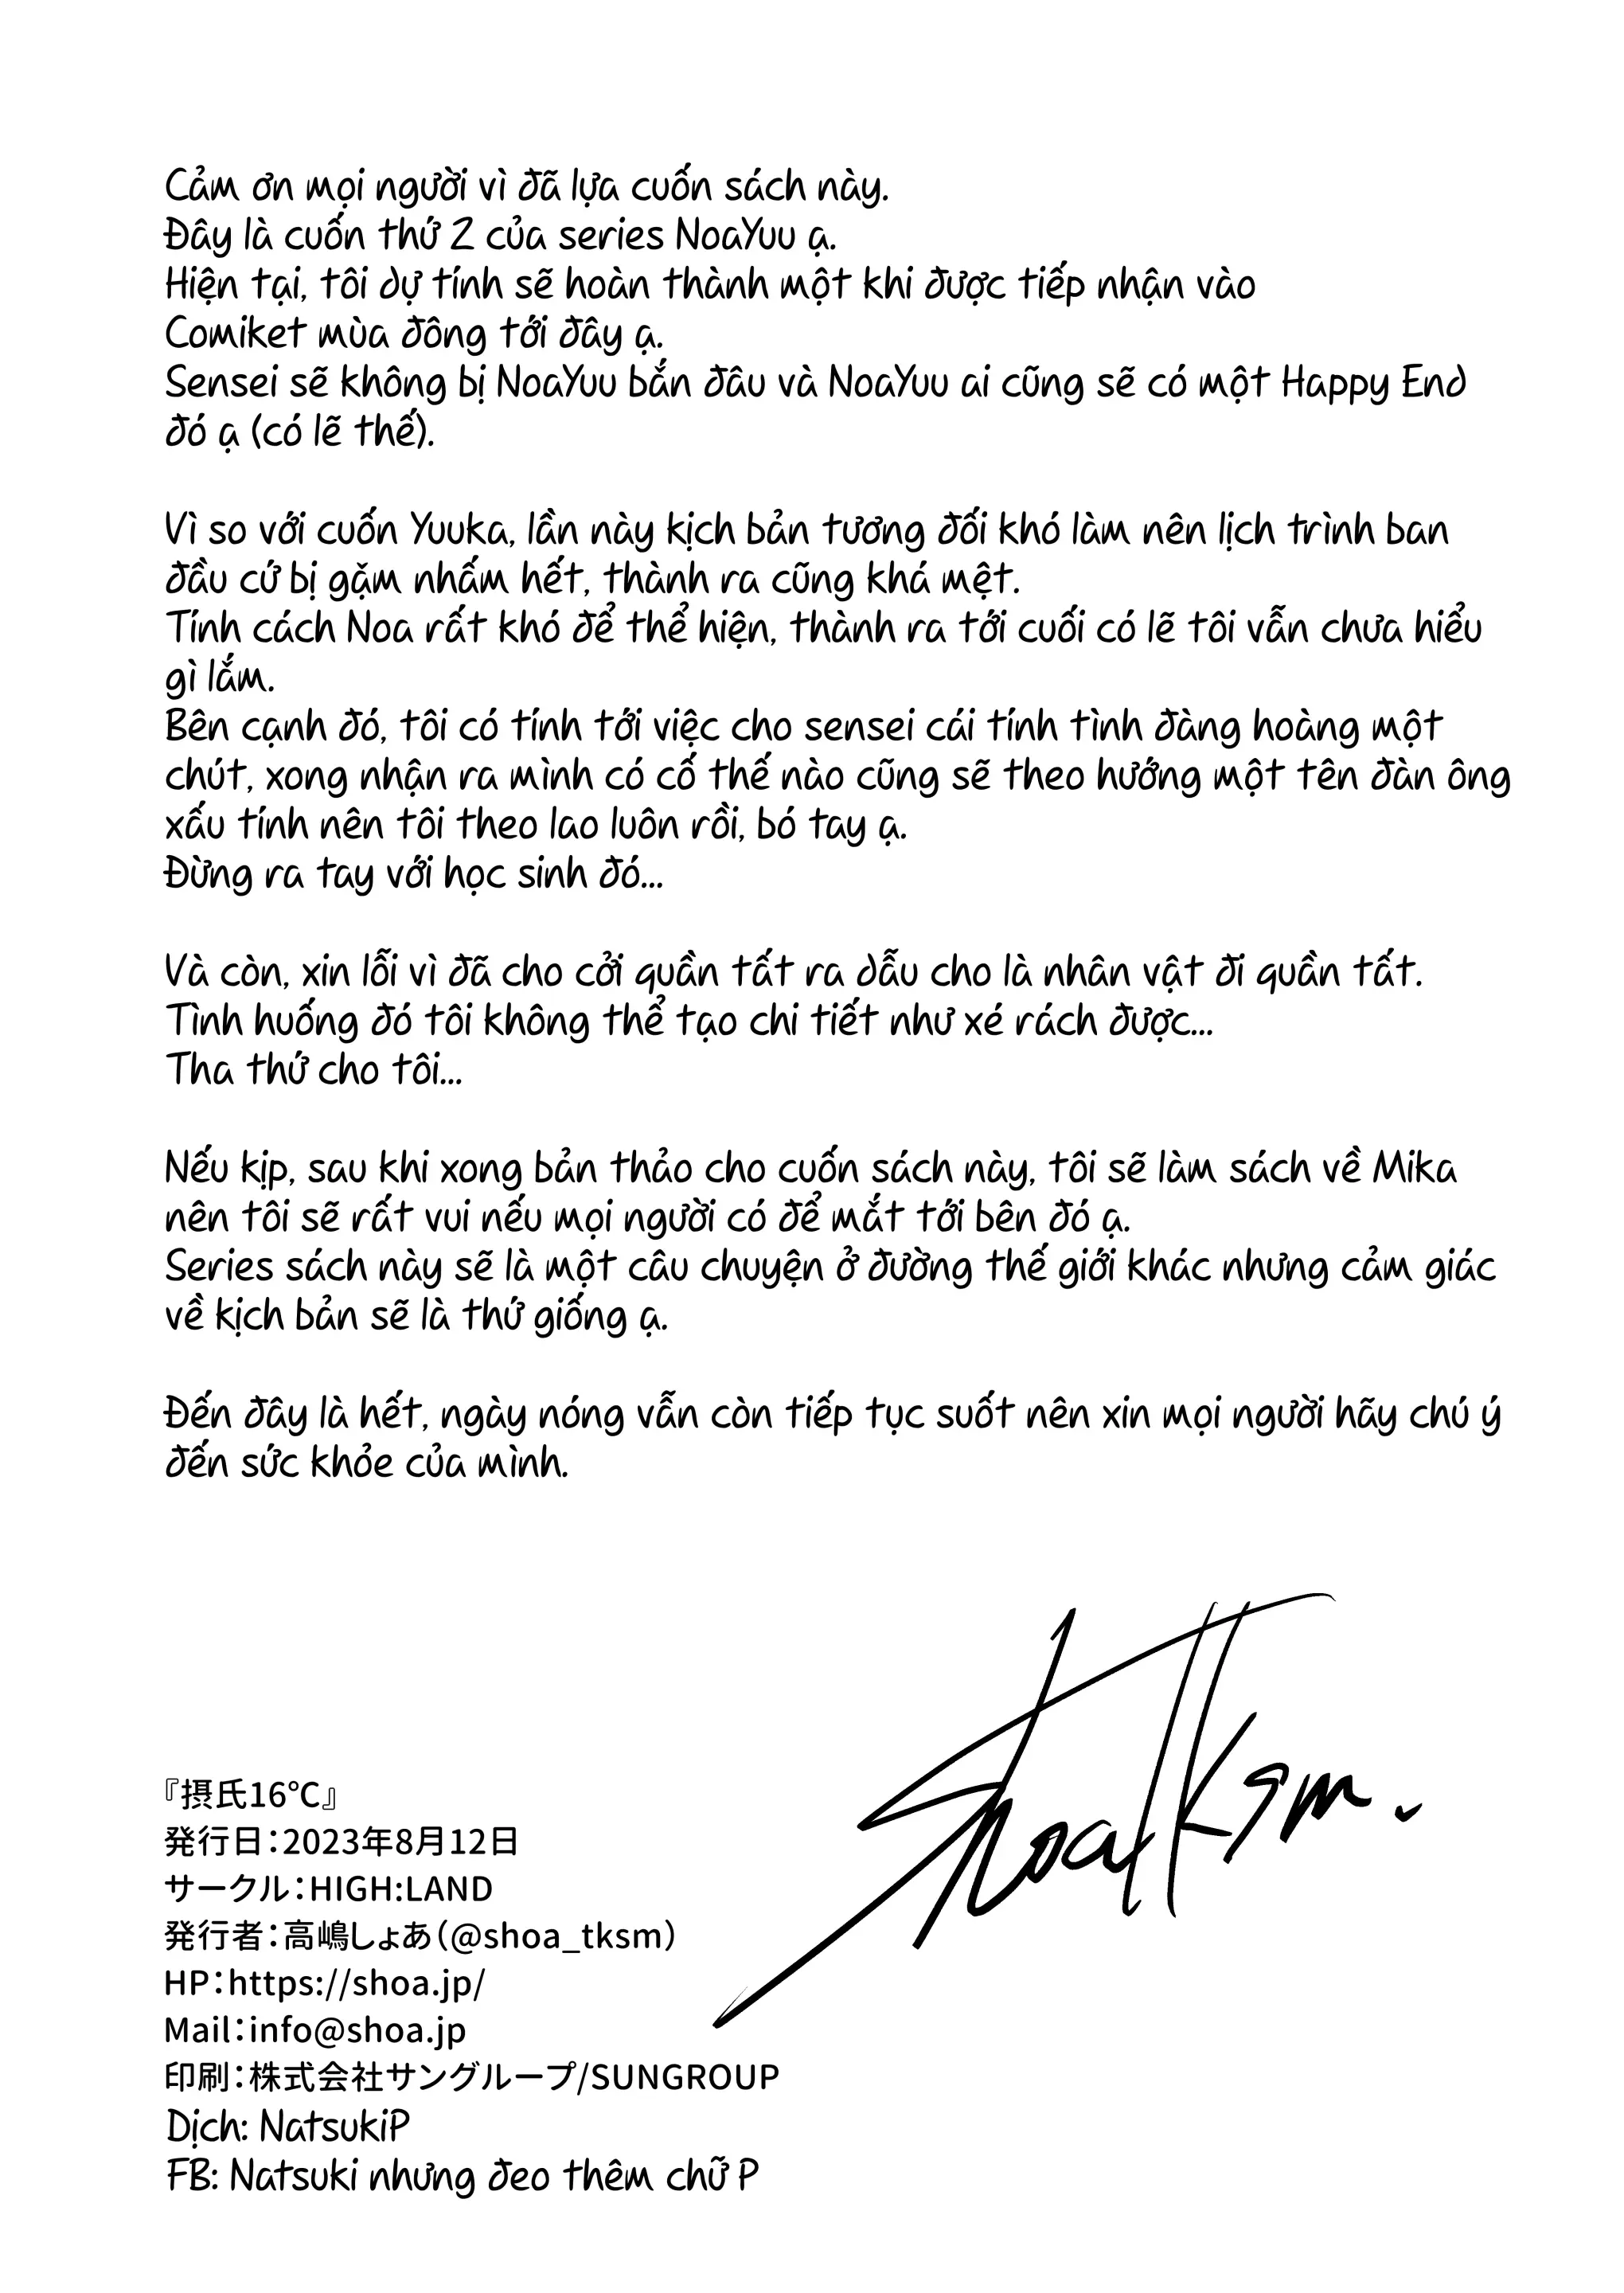 Cảm ơn mọi người vì đã lựa cuốn sách này.
Đây là cuốn thứ 2 của series NoaYuu ạ.
Hiện tại, tôi dự tính sẽ hoàn thành một khi được tiếp nhận vào
Comiket mùa đông tới đây ạ.
Sensei sẽ không bị NoaYuu bắn đâu và NoaYuu ai cũng sẽ có một Happy End
đó ạ (có lẽ thế).
Vì so với cuốn Yuuka, lần này kịch bản tương đối khó làm nên lịch trình ban
đầu cứ bị gặm nhấm hết, thành ra cũng khá mệt.
Tính cách Noa rất khó để thể hiện, thành ra tới cuối có lẽ tôi vẫn chưa hiểu
gì lắm.
Bên cạnh đó, tôi có tính tới việc cho sensei cái tính tình đàng hoàng một
chút, xong nhận ra mình có cố thế nào cũng sẽ theo hướng một tên đàn ông
xấu tính nên tôi theo lao luôn rồi, bó tay ạ.
Đừng ra tay với học sinh đó...
Và còn, xin lỗi vì đã cho cởi quần tất ra dẫu cho là nhân vật đi quần tất.
Tình huống đó tôi không thể tạo chi tiết như xé rách được...
Tha thứ cho tôi...
Nếu kịp, sau khi xong bản thảo cho cuốn sách này, tôi sẽ làm sách về Mika
nên tôi sẽ rất vui nếu mọi người có để mắt tới bên đó ạ.
Series sách này sẽ là một câu chuyện ở đường thế giới khác nhưng cảm giác
về kịch bản sẽ là thứ giống ạ.
Đến đây là hết, ngày nóng vẫn còn tiếp tục suốt nên xin mọi người hãy chú ý
đến sức khỏe của mình.
Shoa Tksm.
『摂氏16℃』
発行日：2023年8月12日
サークル：HIGH:LAND
発行者：高嶋しょあ（@shoa_tksm）
HP：https://shoa.jp/
Mail：info@shoa.jp
印刷：株式会社サングループ/SUNGROUP
Dịch: NatsukiP
FB: Natsuki nhưng đeo thêm chữ P